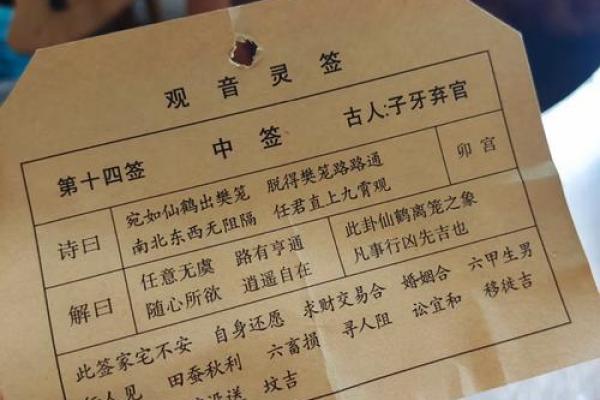 观音灵签
第十四签 中签 古人:子牙弃官
诗曰
宛如仙鹤出樊笼 脱得樊笼路路通
南北东西无阻隔 任君直上九霄观
卯宫
解曰
任意无虞 路有亨通
随心所欲 逍遥自在
此卦仙鹤离笼之象
凡事行凶先吉也
此签家宅不安 自身还愿 求财交易合 婚姻合 六甲生男
行人见 田蚕秋利 六畜损 寻人阻 讼宜和 移徙吉
没送 坟吉